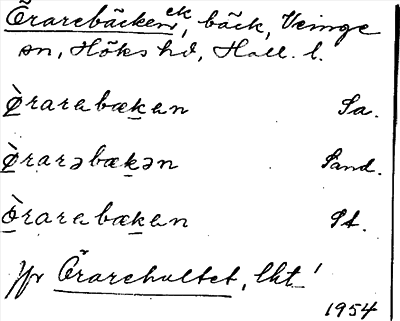 Örarebäcken ek, bäck, Veinge
sn, Höks hd, Hall. l.
ø̀rarabækan Sa.
ø̀rarəbækən Sand.
ò̱rarabækan St.
Jfr Örarehultet, lht!
1954